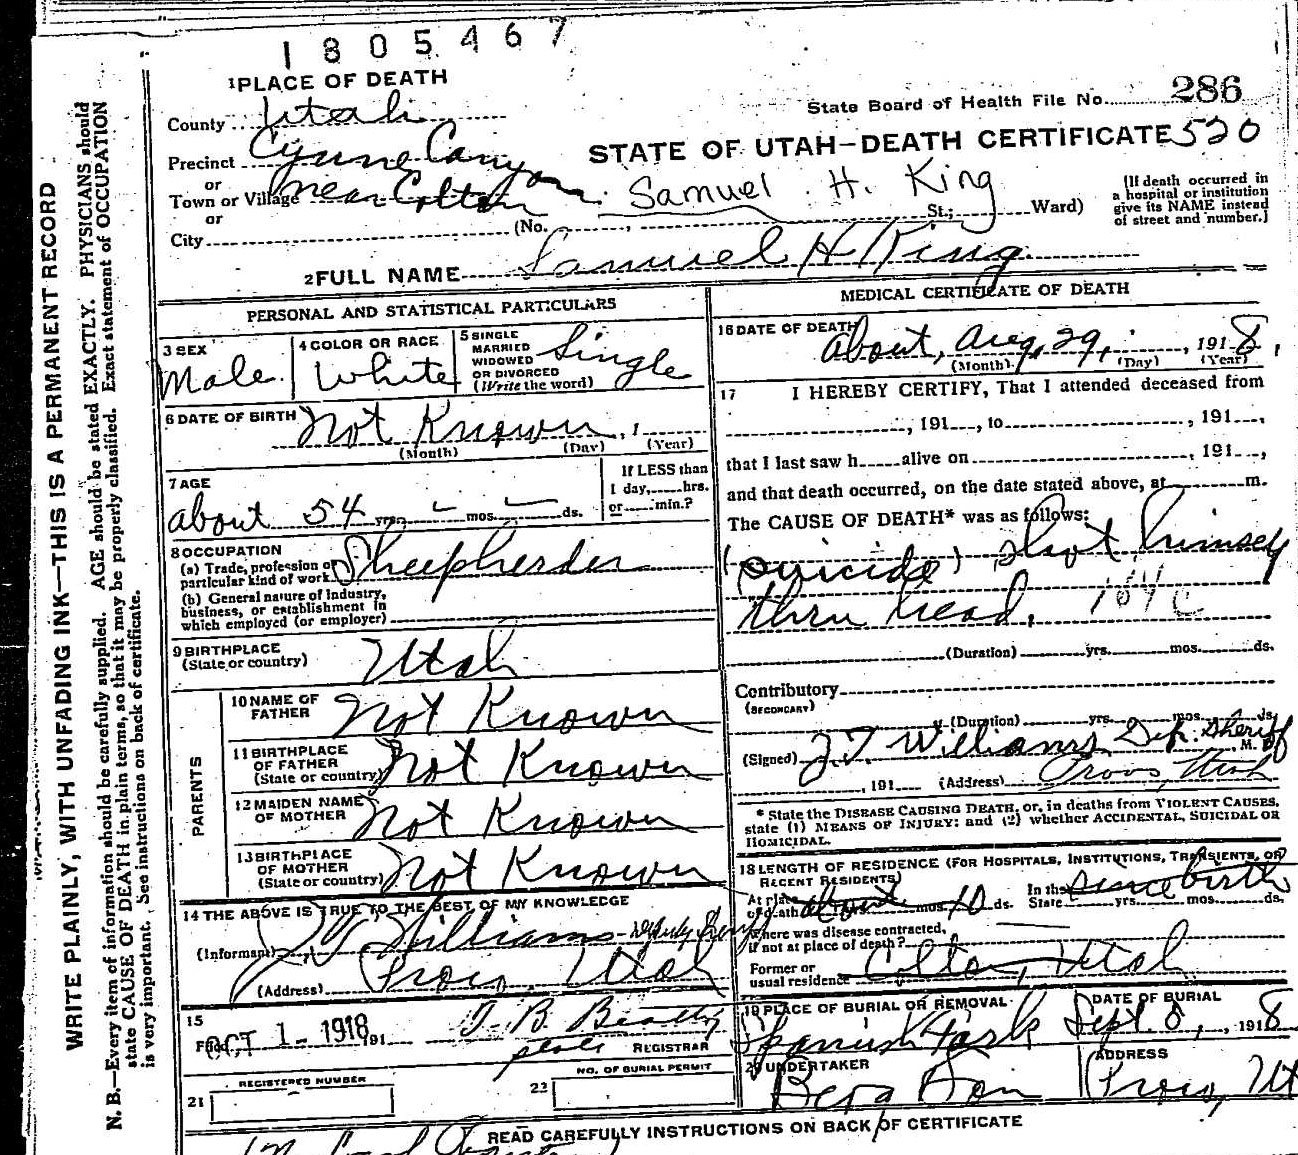 1805467
1 PLACE OF DEATH
State Board of Health File No. 286
County Utah
STATE OF UTAH—DEATH CERTIFICATE 520
Precinct
or
Town or Village near Colton
Samuel H. King
(If death occurred in a hospital or institution give its NAME instead of street and number.)
or
City (No. , St.; Ward)
2 FULL NAME Samuel H King
PERSONAL AND STATISTICAL PARTICULARS
3 SEX Male
4 COLOR OR RACE White
5 SINGLE MARRIED WIDOWED OR DIVORCED (Write the word) Single
6 DATE OF BIRTH Not Known, 1
(Month) (Day) (Year)
7 AGE about 54 yrs. - mos. - ds.
If LESS than 1 day, hrs. or min.?
8 OCCUPATION
(a) Trade, profession or particular kind of work Sheepherder
(b) General nature of industry, business, or establishment in which employed (or employer)
9 BIRTHPLACE (State or country) Utah
PARENTS
10 NAME OF FATHER Not Known
11 BIRTHPLACE OF FATHER (State or country) Not Known
12 MAIDEN NAME OF MOTHER Not Known
13 BIRTHPLACE OF MOTHER (State or country) Not Known
14 THE ABOVE IS TRUE TO THE BEST OF MY KNOWLEDGE
(Informant) Williams - Deputy Sheriff
(Address) Provo, Utah
15
Filed OCT 1 - 1918, 191
REGISTRAR
21 REGISTERED NUMBER
23 NO. OF BURIAL PERMIT
MEDICAL CERTIFICATE OF DEATH
16 DATE OF DEATH About, Aug, 29, 1918,
(Month) (Day) (Year)
17 I HEREBY CERTIFY, That I attended deceased from
, 191 , to , 191 ,
that I last saw h alive on , 191 ,
and that death occurred, on the date stated above, at m.
The CAUSE OF DEATH* was as follows:
(Suicide) Shot himself
thru head.
(Duration) yrs. mos. ds.
Contributory
(SECONDARY)
(Duration) yrs. mos. ds.
(Signed) Williams Dep. Sheriff M. D.
, 191 (Address) Provo, Utah
* State the DISEASE CAUSING DEATH, or, in deaths from VIOLENT CAUSES, state (1) MEANS OF INJURY; and (2) whether ACCIDENTAL, SUICIDAL OR HOMICIDAL.
18 LENGTH OF RESIDENCE (FOR HOSPITALS, INSTITUTIONS, TRANSIENTS, OR RECENT RESIDENTS)
At place of death about mos. 10 ds. In the State since birth yrs. mos. ds.
Where was disease contracted, if not at place of death?
Former or usual residence Colton, Utah
19 PLACE OF BURIAL OR REMOVAL Spanish Fork
DATE OF BURIAL Sept. 8, 1918
20 UNDERTAKER
ADDRESS Provo, Ut
READ CAREFULLY INSTRUCTIONS ON BACK OF CERTIFICATE
WRITE PLAINLY, WITH UNFADING INK—THIS IS A PERMANENT RECORD
N. B.—Every item of information should be carefully supplied. AGE should be stated EXACTLY. PHYSICIANS should
state CAUSE OF DEATH in plain terms, so that it may be properly classified. Exact statement of OCCUPATION
is very important. See instructions on back of certificate.